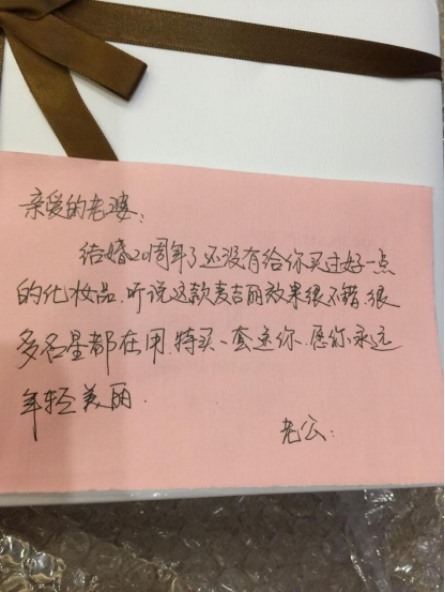 亲爱的老婆：
结婚20周年了还没有给你买过好一点
的化妆品.听说这款麦吉丽效果很不错.很
多名星都在用.特买一套送你.愿你永远
年轻美丽.
老公：